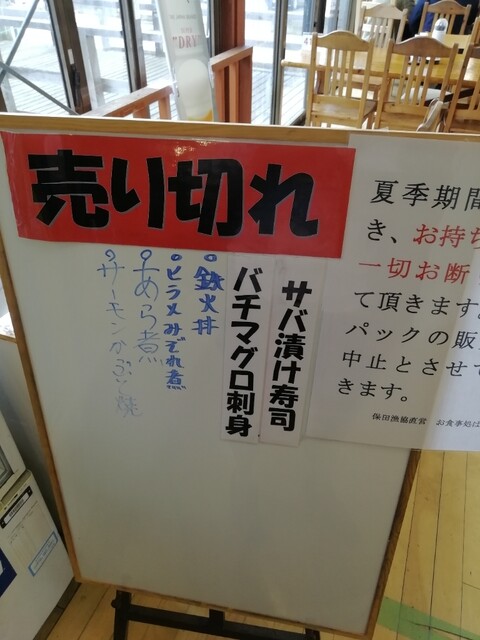 売り切れ
夏季期間
き、お持ち
一切お断
て頂きます。
パックの販
中止とさせて
きます。
保田漁協直営 お食事処ば
サバ漬け寿司
バチマグロ刺身
鉄火丼
ヒラメみぞれ煮
あら煮
サーモンかぶと焼
"DRY"